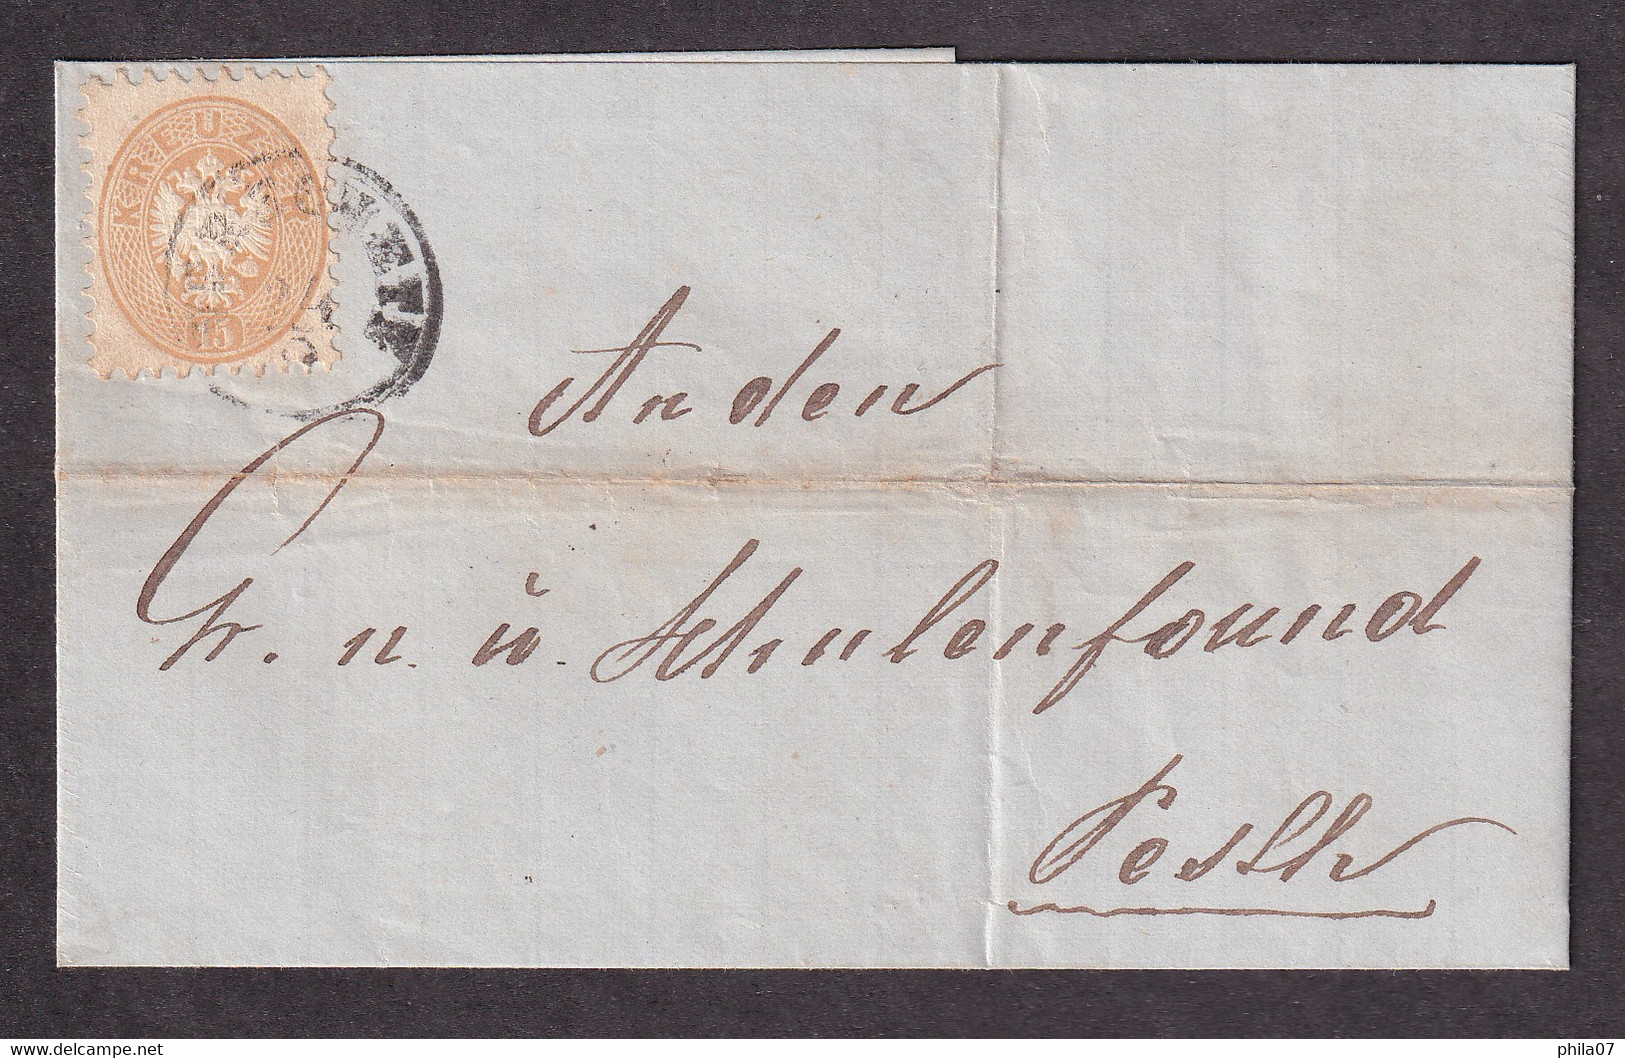 KREUZER
15
An den
Gr. n. u. Schulenfound
Pesth
delcampe.net
phila07